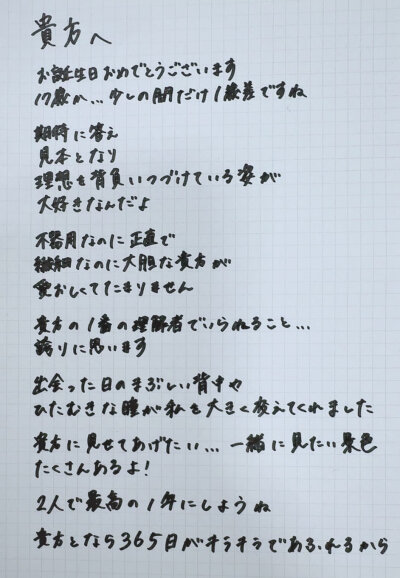 貴方へ
お誕生日おめでとうございます
17歳か…少しの間だけ1歳差ですね
期待に答え
見本となり
理想を背負いつづけている姿が
大好きなんだよ
不器用なのに正直で
繊細なのに大胆な貴方が
愛おしくてたまりません
貴方の1番の理解者でいられること…
誇りに思います
出会った日のまぶしい背中や
ひたむきな瞳が私を大きく変えてくれました
貴方に見せてあげたい…一緒に見たい景色
たくさんあるよ!
2人で最高の1年にしようね
貴方となら365日がキラキラであふれるから